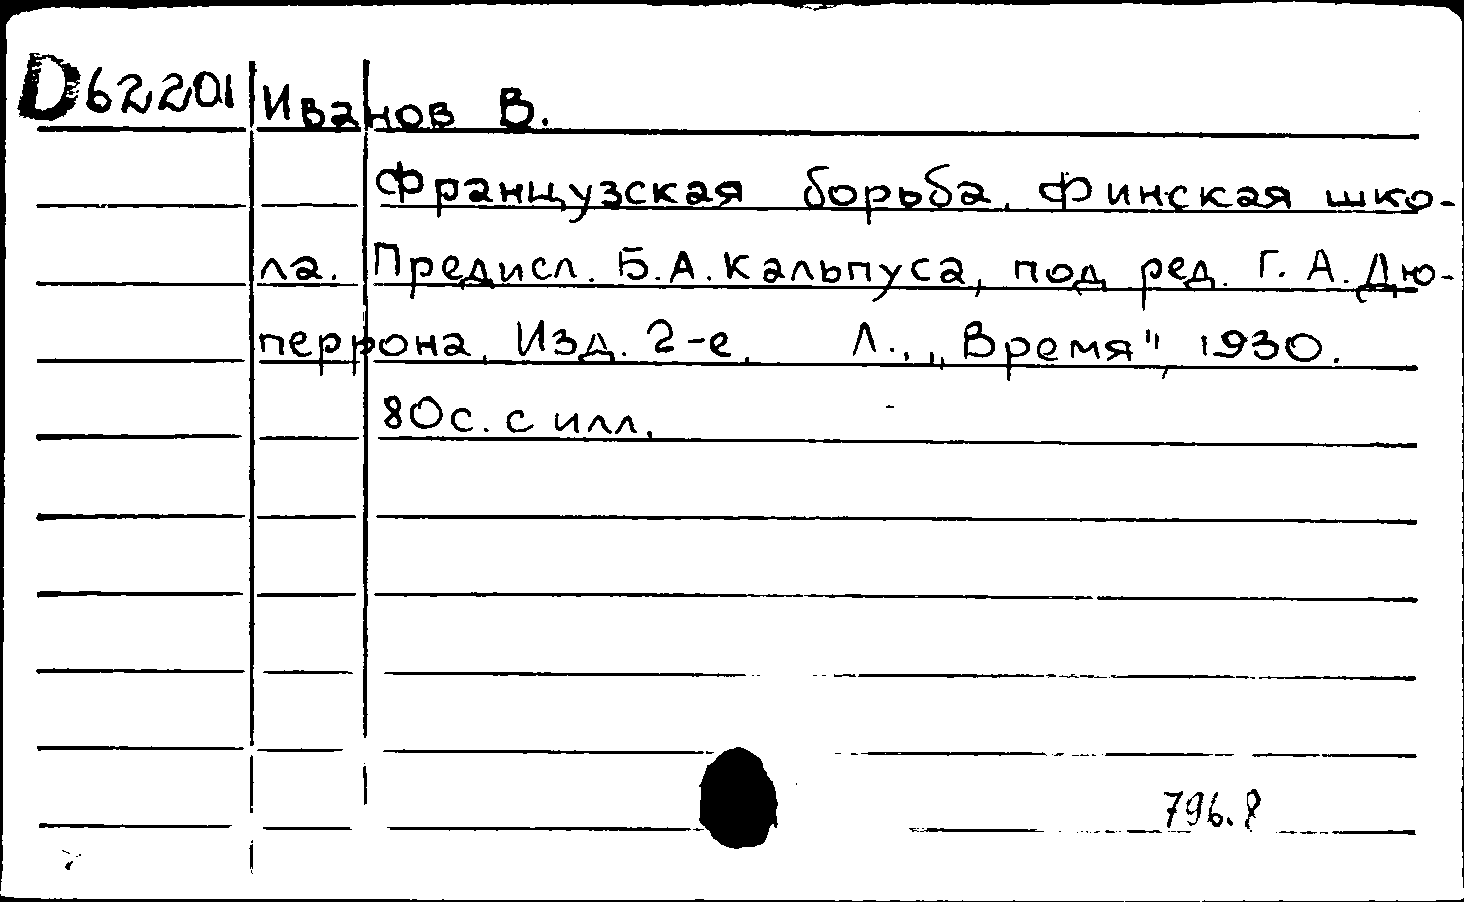 D62201 Иванов В.
Французская борьба. Финская шко-
ла. Предисл. Б.А.Кальпуса, под ред. Г.А.Дю-
перрона. Изд. 2-е. Л., „Время", 1930.
80с. с илл.
796.8